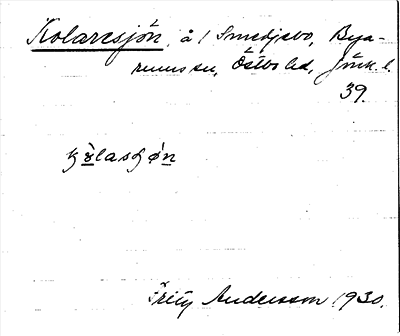 Kolaresjön, å / Smedjebo, Bya-
rums sn, Östbo hd, Jönk. l.
39.
kỳlasʃøn
Fritz Andersson 1930.